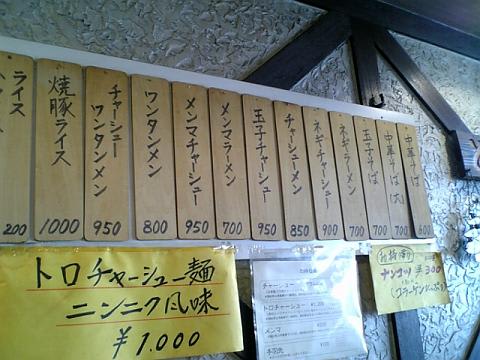 中華そば
600
中華そば(大)
700
玉子そば
700
ネギラーメン
700
ネギチャーシュー
900
チャーシューメン
850
玉子チャーシュー
950
メンマラーメン
700
メンマチャーシュー
950
ワンタンメン
800
チャーシュー
ワンタンメン
950
焼豚ライス
1000
ライス
200
トロチャーシュー麺
ニンニク風味
¥1,000
チャーシュー
トロチャーシュー
メンマ
ナンコツ ¥300